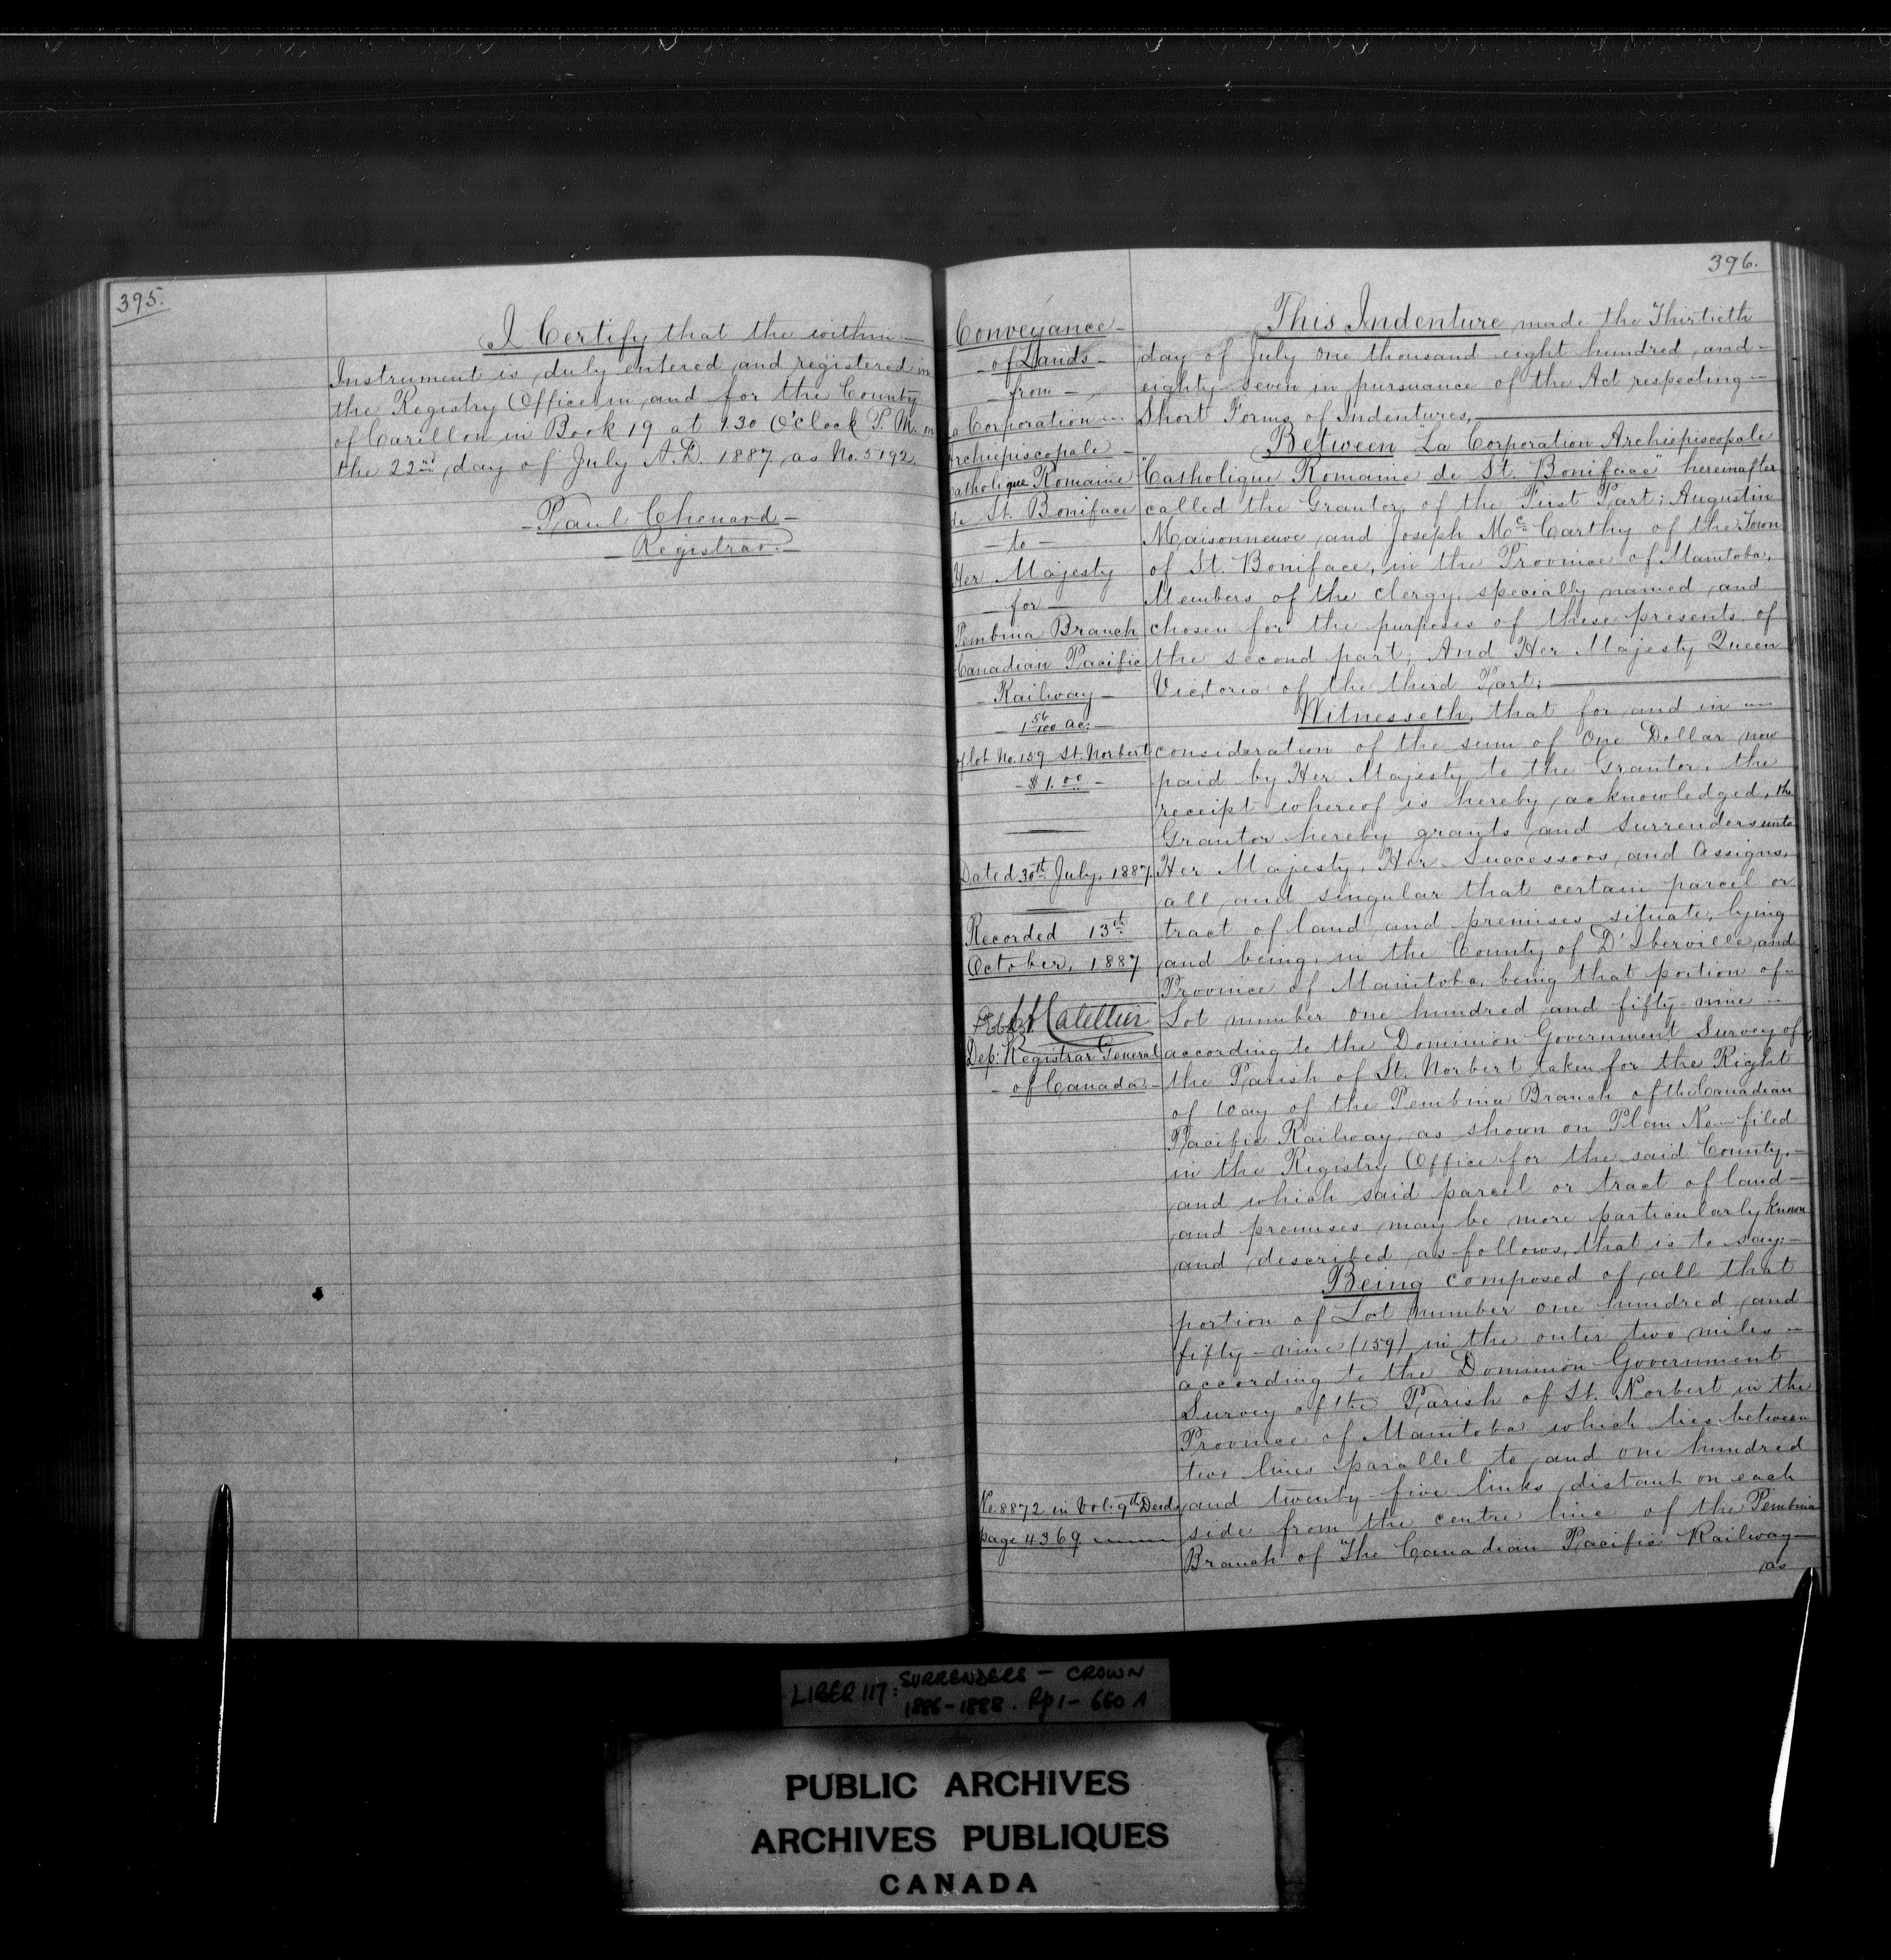 395.
I Certify that the within
Instrument is duly entered and registered in
the Registry Office in and for the County
of Carillon in Book 19 at 1.30 O'clock P.M. on
the 22nd day of July A.D. 1887 as No. 5192.
Paul Chenard
Registrar.
396.
Conveyance
of Lands
from
La Corporation
Archiepiscopale
Catholique Romaine
de St. Boniface
to
Her Majesty
for
Pembina Branch
Canadian Pacific
Railway
1 56/100 ac:
of lot No. 159 St. Norbert
$1.00
Dated 30th July, 1887.
Recorded 13th
October, 1887
Dep: Registrar General
of Canada
No. 8872 in Vol. 9th Deeds
page 4369.
This Indenture made the Thirtieth
day of July one thousand eight hundred and
eighty seven in pursuance of the Act respecting
Short Forms of Indentures,
Between "La Corporation Archiepiscopale
"Catholique Romaine de St. Boniface" hereinafter
called the Grantor, of the First Part; Augustin
Maisonneuve and Joseph Mc.Carthy of the Town
of St. Boniface, in the Province of Manitoba,
Members of the Clergy, specially named and
chosen for the purposes of these presents of
the second part; And Her Majesty Queen
Victoria of the third Part;
Witnesseth, that for and in
consideration of the sum of One Dollar now
paid by Her Majesty to the Grantor, the
receipt whereof is hereby acknowledged, the
Grantor hereby grants and Surrenders unto
Her Majesty, Her Successors and Assigns,
all and singular that certain parcel or
tract of land and premises situate, lying
and being, in the County of D'Iberville and
Province of Manitoba, being that portion of
Lot number one hundred and fifty-nine
according to the Dominion Government Survey of
the Parish of St. Norbert taken for the Right
of way of the Pembina Branch of the Canadian
Pacific Railway, as shown on Plan No — filed
in the Registry Office for the said County,
and which said parcel or tract of land
and premises may be more particularly known
and described as follows, that is to say:
Being composed of all that
portion of Lot number one hundred and
fifty-nine (159) in the outer two miles
according to the Dominion Government
Survey of the Parish of St. Norbert in the
Province of Manitoba which lies between
two lines parallel to and one hundred
and twenty five links distant on each
side from the centre line of the Pembina
Branch of The Canadian Pacific Railway
as
LIBER 117: SURRENDERS – CROWN
1886–1888. Pp 1–660 A
PUBLIC ARCHIVES
ARCHIVES PUBLIQUES
CANADA